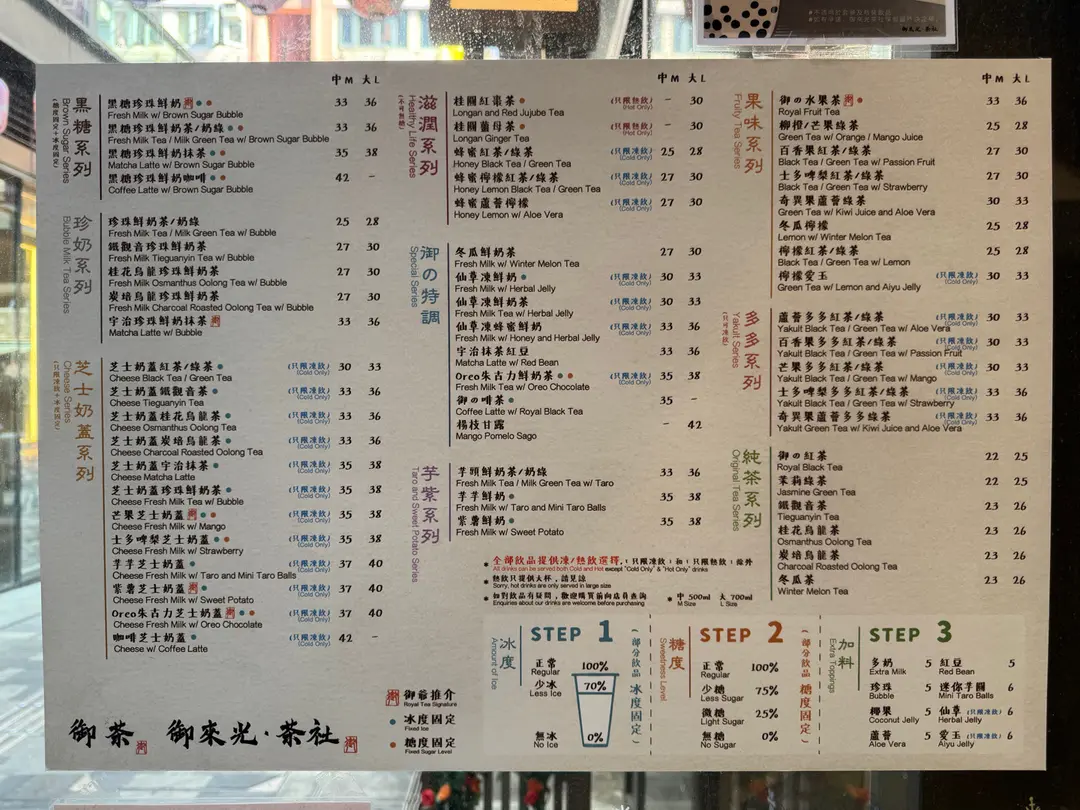 中M 大L
黑糖系列
Brown Sugar Series
(糖度固定+冰度固定)
黑糖珍珠鮮奶 33 36
Fresh Milk w/ Brown Sugar Bubble
黑糖珍珠鮮奶茶/奶綠 33 36
Fresh Milk Tea / Milk Green Tea w/ Brown Sugar Bubble
黑糖珍珠鮮奶抹茶 35 38
Matcha Latte w/ Brown Sugar Bubble
黑糖珍珠鮮奶咖啡 42 -
Coffee Latte w/ Brown Sugar Bubble
珍奶系列
Bubble Milk Tea Series
珍珠鮮奶茶/奶綠 25 28
Fresh Milk Tea / Milk Green Tea w/ Bubble
鐵觀音珍珠鮮奶茶 27 30
Fresh Milk Tieguanyin Tea w/ Bubble
桂花烏龍珍珠鮮奶茶 27 30
Fresh Milk Osmanthus Oolong Tea w/ Bubble
炭培烏龍珍珠鮮奶茶 27 30
Fresh Milk Charcoal Roasted Oolong Tea w/ Bubble
宇治珍珠鮮奶抹茶 33 36
Matcha Latte w/ Bubble
芝士奶蓋系列
Cheese Series
(只限凍飲+冰度固定)
芝士奶蓋紅茶/綠茶 (只限凍飲) 30 33
Cheese Black Tea / Green Tea (Cold Only)
芝士奶蓋鐵觀音茶 (只限凍飲) 33 36
Cheese Tieguanyin Tea (Cold Only)
芝士奶蓋桂花烏龍茶 (只限凍飲) 33 36
Cheese Osmanthus Oolong Tea (Cold Only)
芝士奶蓋炭培烏龍茶 (只限凍飲) 33 36
Cheese Charcoal Roasted Oolong Tea (Cold Only)
芝士奶蓋宇治抹茶 (只限凍飲) 35 38
Cheese Matcha Latte (Cold Only)
芝士奶蓋珍珠鮮奶茶 (只限凍飲) 35 38
Cheese Fresh Milk Tea w/ Bubble (Cold Only)
芒果芝士奶蓋 (只限凍飲) 35 38
Cheese Fresh Milk w/ Mango (Cold Only)
士多啤梨芝士奶蓋 (只限凍飲) 35 38
Cheese Fresh Milk w/ Strawberry (Cold Only)
芋芋芝士奶蓋 (只限凍飲) 37 40
Cheese Fresh Milk w/ Taro and Mini Taro Balls (Cold Only)
紫薯芝士奶蓋 (只限凍飲) 37 40
Cheese Fresh Milk w/ Sweet Potato (Cold Only)
Oreo朱古力芝士奶蓋 (只限凍飲) 37 40
Cheese Fresh Milk w/ Oreo Chocolate (Cold Only)
咖啡芝士奶蓋 (只限凍飲) 42 -
Cheese w/ Coffee Latte (Cold Only)
御茶 御來光·茶社
御爺推介
Royal Tea Signature
冰度固定
Fixed Ice
糖度固定
Fixed Sugar Level
中M 大L
滋潤系列
Healthy Life Series
(不可無糖)
桂圓紅棗茶 (只限熱飲) - 30
Longan and Red Jujube Tea (Hot Only)
桂圓薑母茶 (只限熱飲) - 30
Longan Ginger Tea (Hot Only)
蜂蜜紅茶/綠茶 (只限凍飲) 25 28
Honey Black Tea / Green Tea (Cold Only)
蜂蜜檸檬紅茶/綠茶 (只限凍飲) 27 30
Honey Lemon Black Tea / Green Tea (Cold Only)
蜂蜜蘆薈檸檬 (只限凍飲) 27 30
Honey Lemon w/ Aloe Vera (Cold Only)
御の特調
Special Series
冬瓜鮮奶茶 27 30
Fresh Milk w/ Winter Melon Tea
仙草凍鮮奶 (只限凍飲) 30 33
Fresh Milk w/ Herbal Jelly (Cold Only)
仙草凍鮮奶茶 (只限凍飲) 30 33
Fresh Milk Tea w/ Herbal Jelly (Cold Only)
仙草凍蜂蜜鮮奶 (只限凍飲) 33 36
Fresh Milk w/ Honey and Herbal Jelly (Cold Only)
宇治抹茶紅豆 33 36
Matcha Latte w/ Red Bean
Oreo朱古力鮮奶茶 (只限凍飲) 35 38
Fresh Milk Tea w/ Oreo Chocolate (Cold Only)
御の啡茶 35 -
Coffee Latte w/ Royal Black Tea
楊枝甘露 - 42
Mango Pomelo Sago
芋紫系列
Taro and Sweet Potato Series
芋頭鮮奶茶/奶綠 33 36
Fresh Milk Tea / Milk Green Tea w/ Taro
芋芋鮮奶 35 38
Fresh Milk w/ Taro and Mini Taro Balls
紫薯鮮奶 35 38
Fresh Milk w/ Sweet Potato
全部飲品提供凍/熱飲選擇,「只限凍飲」和「只限熱飲」除外
All drinks can be served both Cold and Hot except "Cold Only" & "Hot Only" drinks
熱飲只提供大杯，請見諒
Sorry, hot drinks are only served in large size
如對飲品有疑問，歡迎購買前向店員查詢
Enquiries about our drinks are welcome before purchasing
中 500ml 大 700ml
M Size L Size
中M 大L
果味系列
Fruity Tea Series
御の水果茶 33 36
Royal Fruit Tea
柳橙/芒果綠茶 25 28
Green Tea w/ Orange / Mango Juice
百香果紅茶/綠茶 27 30
Black Tea / Green Tea w/ Passion Fruit
士多啤梨紅茶/綠茶 27 30
Black Tea / Green Tea w/ Strawberry
奇異果蘆薈綠茶 30 33
Green Tea w/ Kiwi Juice and Aloe Vera
冬瓜檸檬 25 28
Lemon w/ Winter Melon Tea
檸檬紅茶/綠茶 25 28
Black Tea / Green Tea w/ Lemon
檸檬愛玉 (只限凍飲) 30 33
Green Tea w/ Lemon and Aiyu Jelly (Cold Only)
多多系列
Yakult Series
(只可凍飲)
蘆薈多多紅茶/綠茶 (只限凍飲) 30 33
Yakult Black Tea / Green Tea w/ Aloe Vera (Cold Only)
百香果多多紅茶/綠茶 (只限凍飲) 30 33
Yakult Black Tea / Green Tea w/ Passion Fruit (Cold Only)
芒果多多紅茶/綠茶 (只限凍飲) 30 33
Yakult Black Tea / Green Tea w/ Mango (Cold Only)
士多啤梨多多紅茶/綠茶 (只限凍飲) 33 36
Yakult Black Tea / Green Tea w/ Strawberry (Cold Only)
奇異果蘆薈多多綠茶 (只限凍飲) 33 36
Yakult Green Tea w/ Kiwi Juice and Aloe Vera (Cold Only)
純茶系列
Original Tea Series
御の紅茶 22 25
Royal Black Tea
茉莉綠茶 22 25
Jasmine Green Tea
鐵觀音茶 23 26
Tieguanyin Tea
桂花烏龍茶 23 26
Osmanthus Oolong Tea
炭培烏龍茶 23 26
Charcoal Roasted Oolong Tea
冬瓜茶 23 26
Winter Melon Tea
冰度
Amount of Ice
STEP 1
正常 100%
Regular
少冰 70%
Less Ice
無冰 0%
No Ice
(部分飲品冰度固定)
糖度
Sweetness Level
STEP 2
正常 100%
Regular
少糖 75%
Less Sugar
微糖 25%
Light Sugar
無糖 0%
No Sugar
(部分飲品糖度固定)
加料
Extra Toppings
STEP 3
多奶 5 紅豆 5
Extra Milk Red Bean
珍珠 5 迷你芋圓 6
Bubble Mini Taro Balls
椰果 5 仙草 (只限凍飲) 6
Coconut Jelly Herbal Jelly (Cold Only)
蘆薈 5 愛玉 (只限凍飲) 6
Aloe Vera Aiyu Jelly (Cold Only)